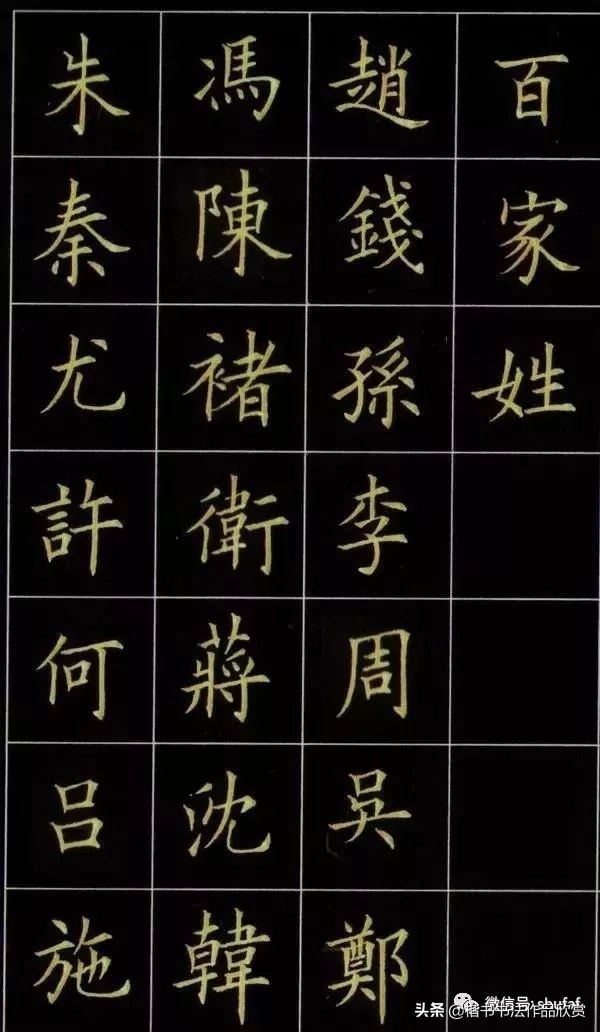 百家姓
趙錢孫李周吳鄭
馮陳褚衛蔣沈韓
朱秦尤許何吕施
微信号: shufaf
头条@楷书书法作品欣赏